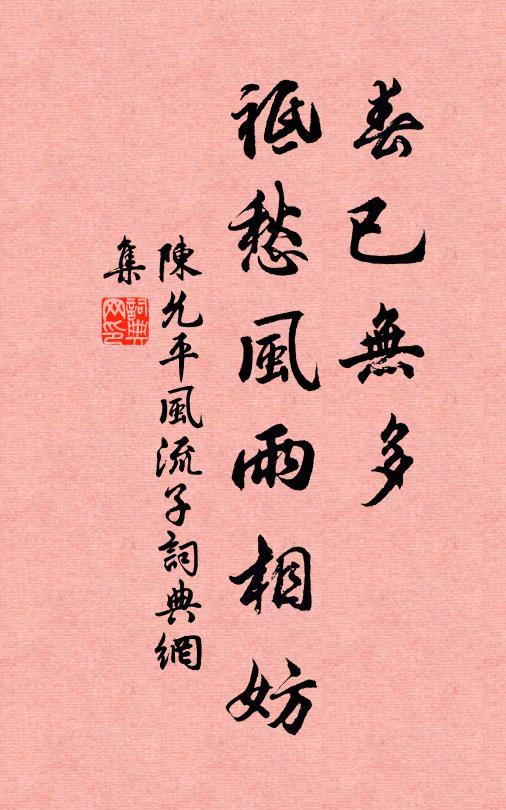 春已無多
祗愁風雨相妨
陳允平風流子詞典網
集
詞典
網印